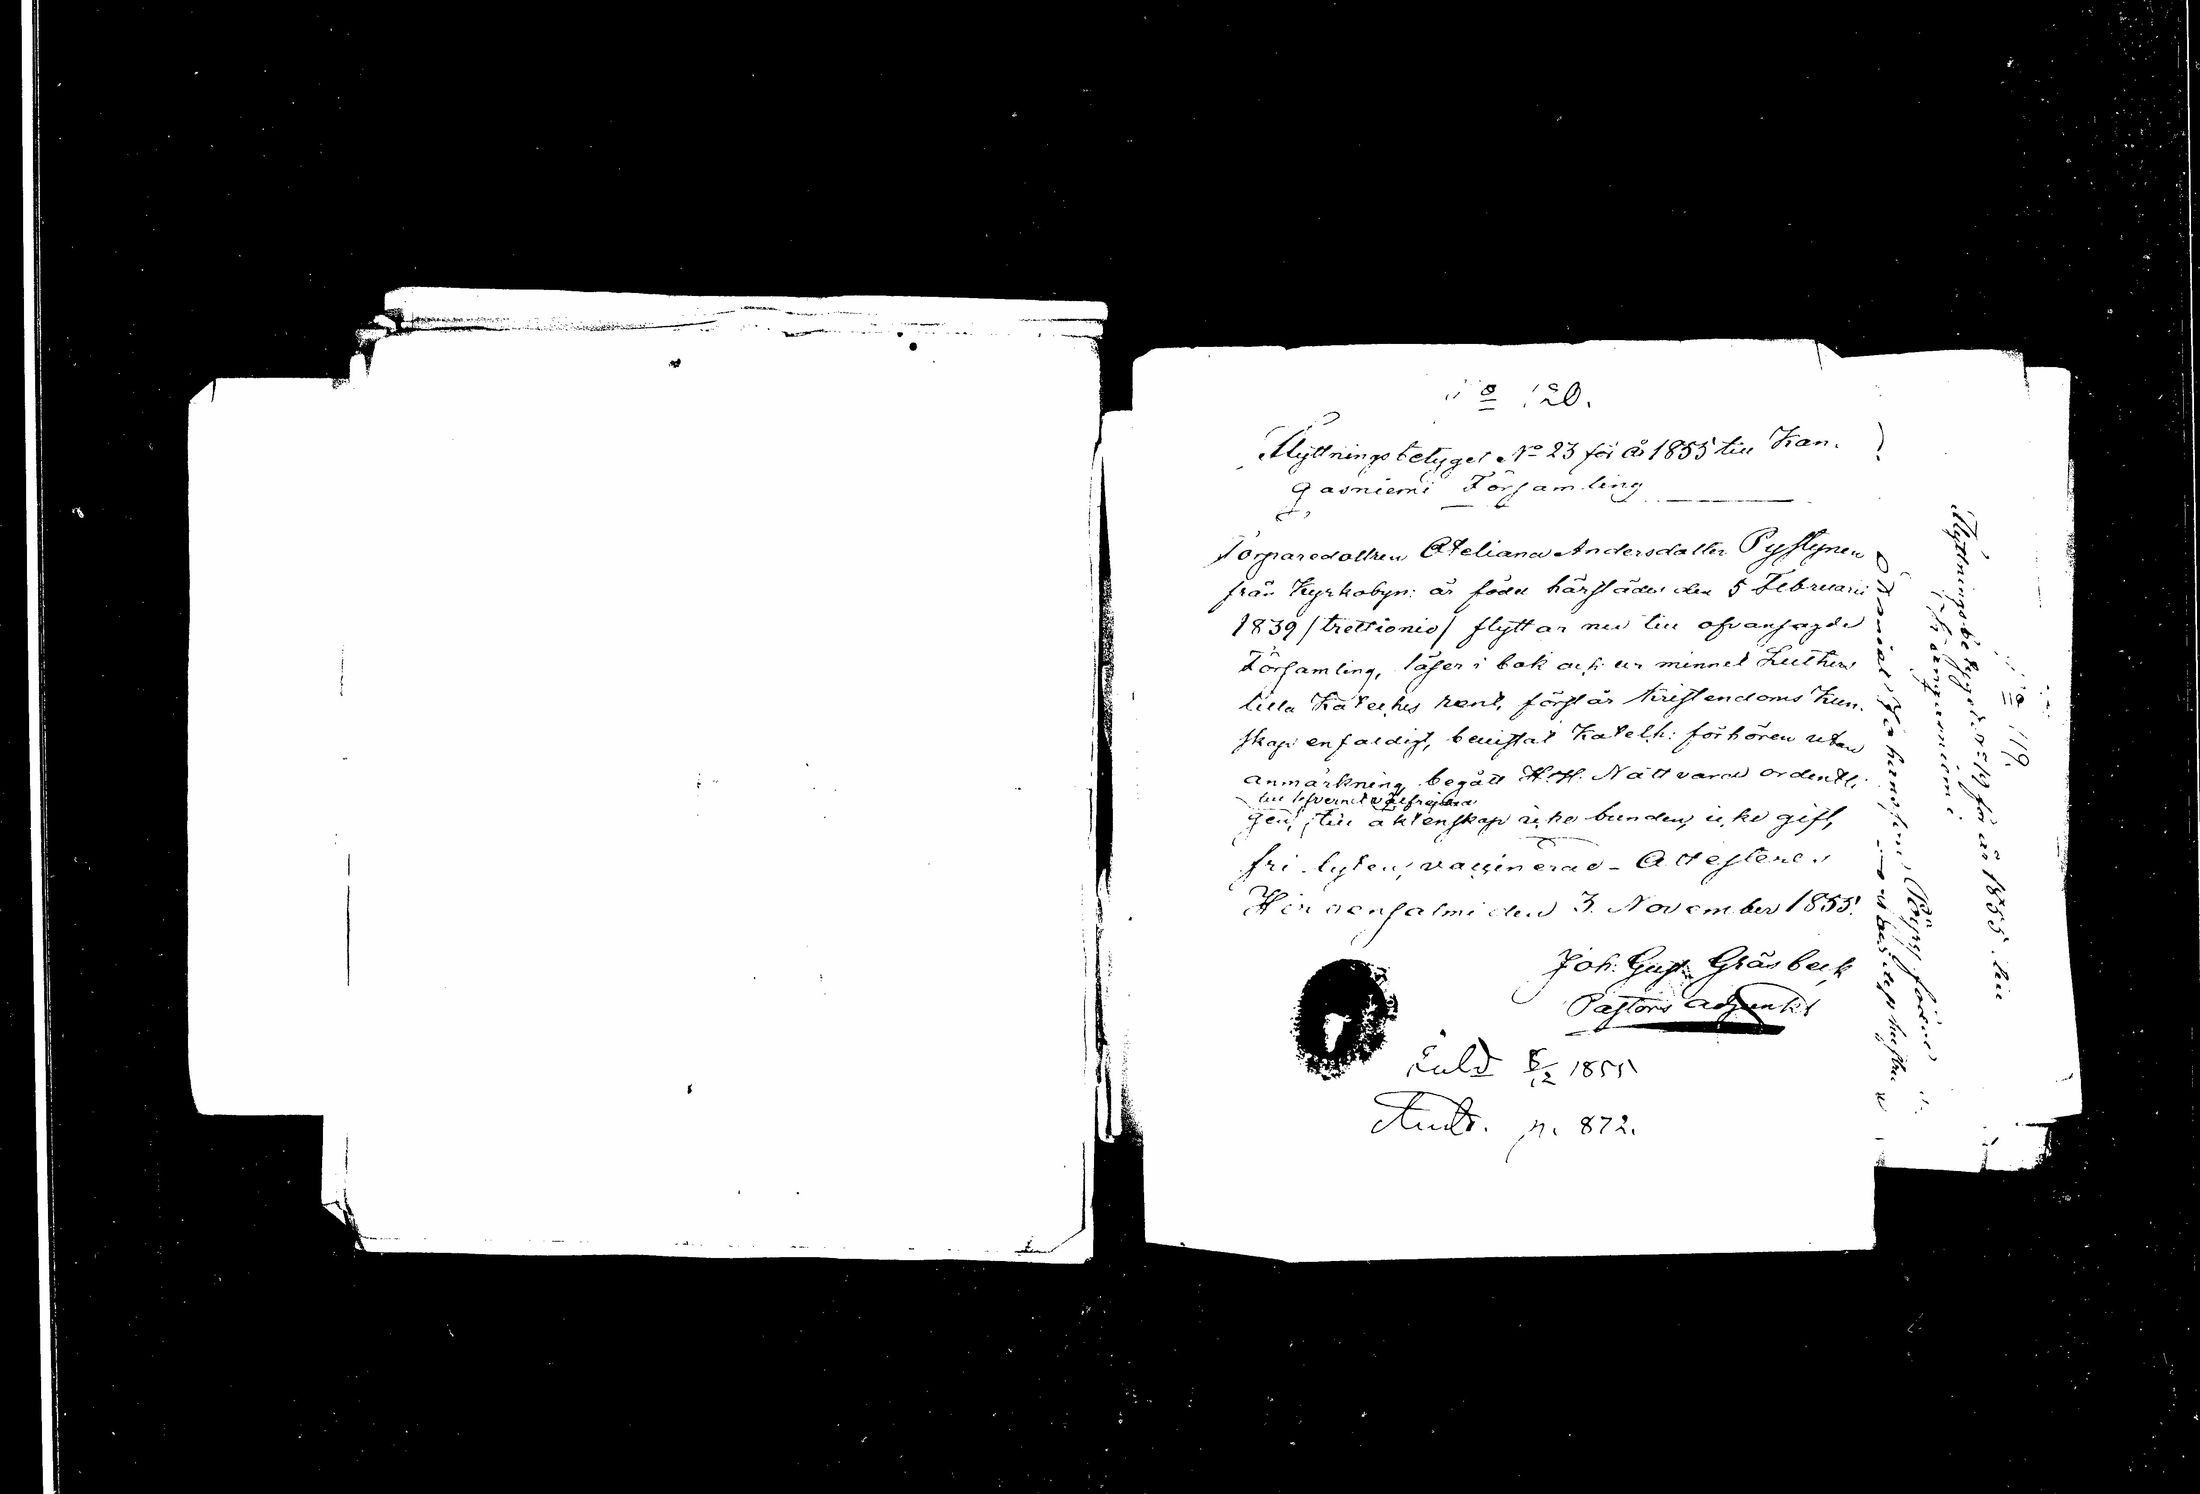 No 120.
Flyttningsbetyget No 23 för år 1855 till Kan-
gasniemi Församling
Torparedottren Adeliana Andersdotter Pystynen
från Kyrkobyn: är född härstädes den 5 Februarii
1839 /trettionio/ flyttar nu till ofvansagde
Församling, läser i bok och ur minnet Luthers
lilla Kateches rent, förstår Kristendoms Kun-
skap enfaldigt, bevistat Katech: förhören utan
anmärkning, begått H.H. Nattvard ordentli-
till lefvernet välfrejdad
gen, till äktenskap icke bunden, icke gift,
fri lyten, vaccinerad - Attesterar
Hirvensalmi den 3 November 1855.
Joh. Gust. Gräsbeck
Pastors adjunkt
Inld 8/12 1855
Antr. p. 872.
No 119.
Flyttningsbetyget No för år 1855 till
Kangasniemi